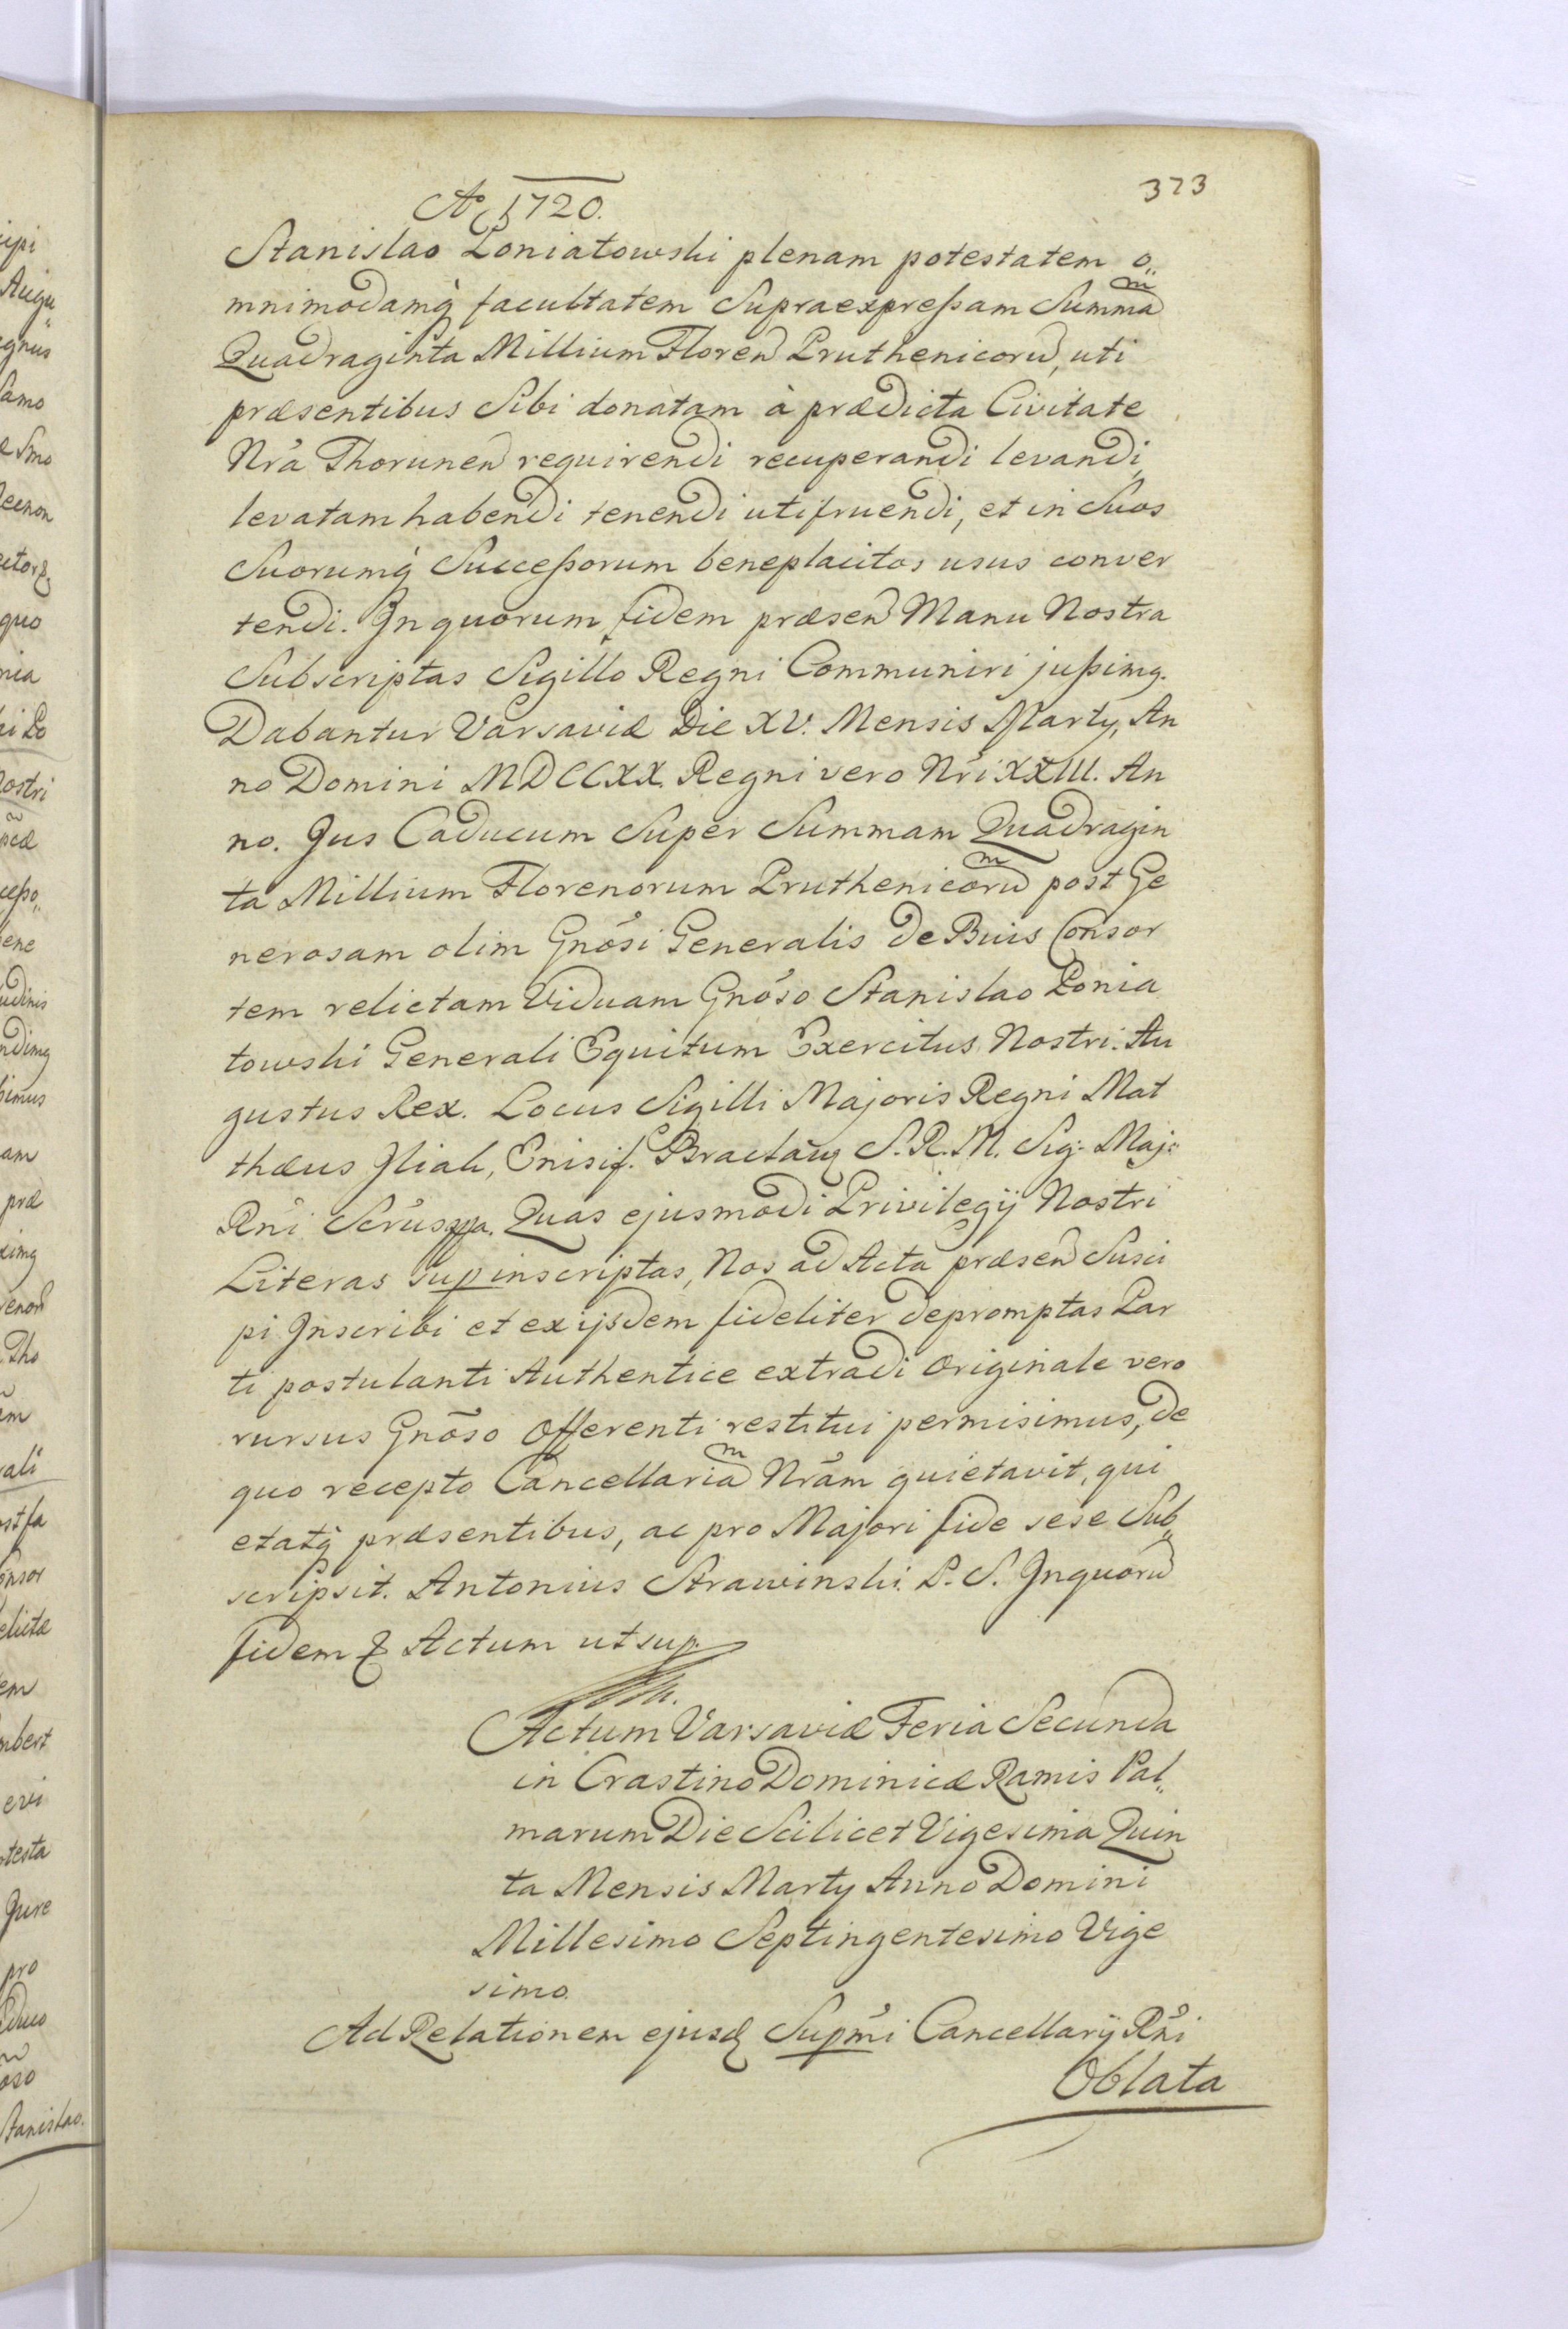 373
Aº 1720.
Stanislao Poniatowski plenam potestatem o„
mnimodamq̀ facultatem Supraexpreßam Summa͠m
Quadraginta Millium Floren Pruthenicoru, uti
præsentibus Sibi donatam à prædicta Civitate
Nr̃a Thorunen requirendi recuperandi levandi,
levatam habendi tenendi utifruendi, et in Suos
Suorumq̀ Succeßorum beneplacitos usus conver
tendi. Jn quorum fidem præsen Manu Nostra
Subscriptas Sigillo Regni Communiri jußimq.
Dabantur Varsaviæ Die XV. Mensis Martij, An
no Domini MDCCXX. Regni vero Nr̃i XXIII. An
no. Jus Caducum Super Summam Quadragin
ta Millium Florenorum Pruthenicoru͠m post Ge
nerosam olim Gnõsi Generalis de Buis Consor
tem relictam Viduam Gnõso Stanislao Ponia
towski Generali Equitum Exercitus Nostri. Au
gustus Rex. Locus Sigilli Majoris Regni Mat
thæus Jliak, Ensif. Braclaw S. R. M. Sig: Maj:
Rñi Secr̃us mpa. Quas ejusmodi Privilegij Nostri
Literas sup inscriptas, Nos ad Acta præsen Susci
pi Jnscribi et ex ijsdem fideliter depromptas Par
ti postulanti Authentice extradi Originale vero
rursus Gnõso Offerenti restitui permisimus, de
quo recepto Cancellaria͠m Nr̃am quietavit, qui
etatq̀ præsentibus, ac pro Majori fide sese Sub„
scripsit. Antonius Strawinski. P. S. Jn quoru
fidem & Actum ut sup.
Actum Varsaviæ Feria Secunda
in Crastino Dominicæ Ramis Pal„
marum Die Scilicet Vigesima Quin
ta Mensis Martij Anno Domini
Millesimo Septingentesimo Vige
simo.
Ad Relationem ejusd Supm̃i Cancellarij Rñi
Oblata